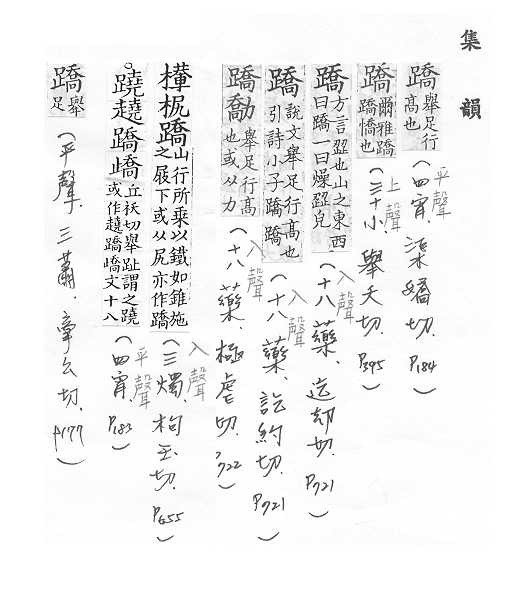 集韻
蹻舉足行高也（平聲 四宵．渠嬌切．P184）
蹻爾雅蹻蹻憍也（上聲 三十小．舉夭切．P395）
蹻方言跫也山之東西曰蹻一曰燥跫皃（入聲 十八藥．迄却切．P721）
蹻說文舉足行高也引詩小子蹻蹻（入聲 十八藥．訖約切．P721）
蹻勪舉足行高也或从力（入聲 十八藥．極虐切．P722）
檋梮蹻山行所乘以鐵如錐施之屐下或从尻亦作蹻（入聲 三燭．拘玉切．P655）
蹺趬蹻嶠丘袄切舉趾謂之蹺或作趬蹻嶠文十八（平聲 四宵．P183）
蹻舉足（平聲．三蕭．牽幺切．P177）